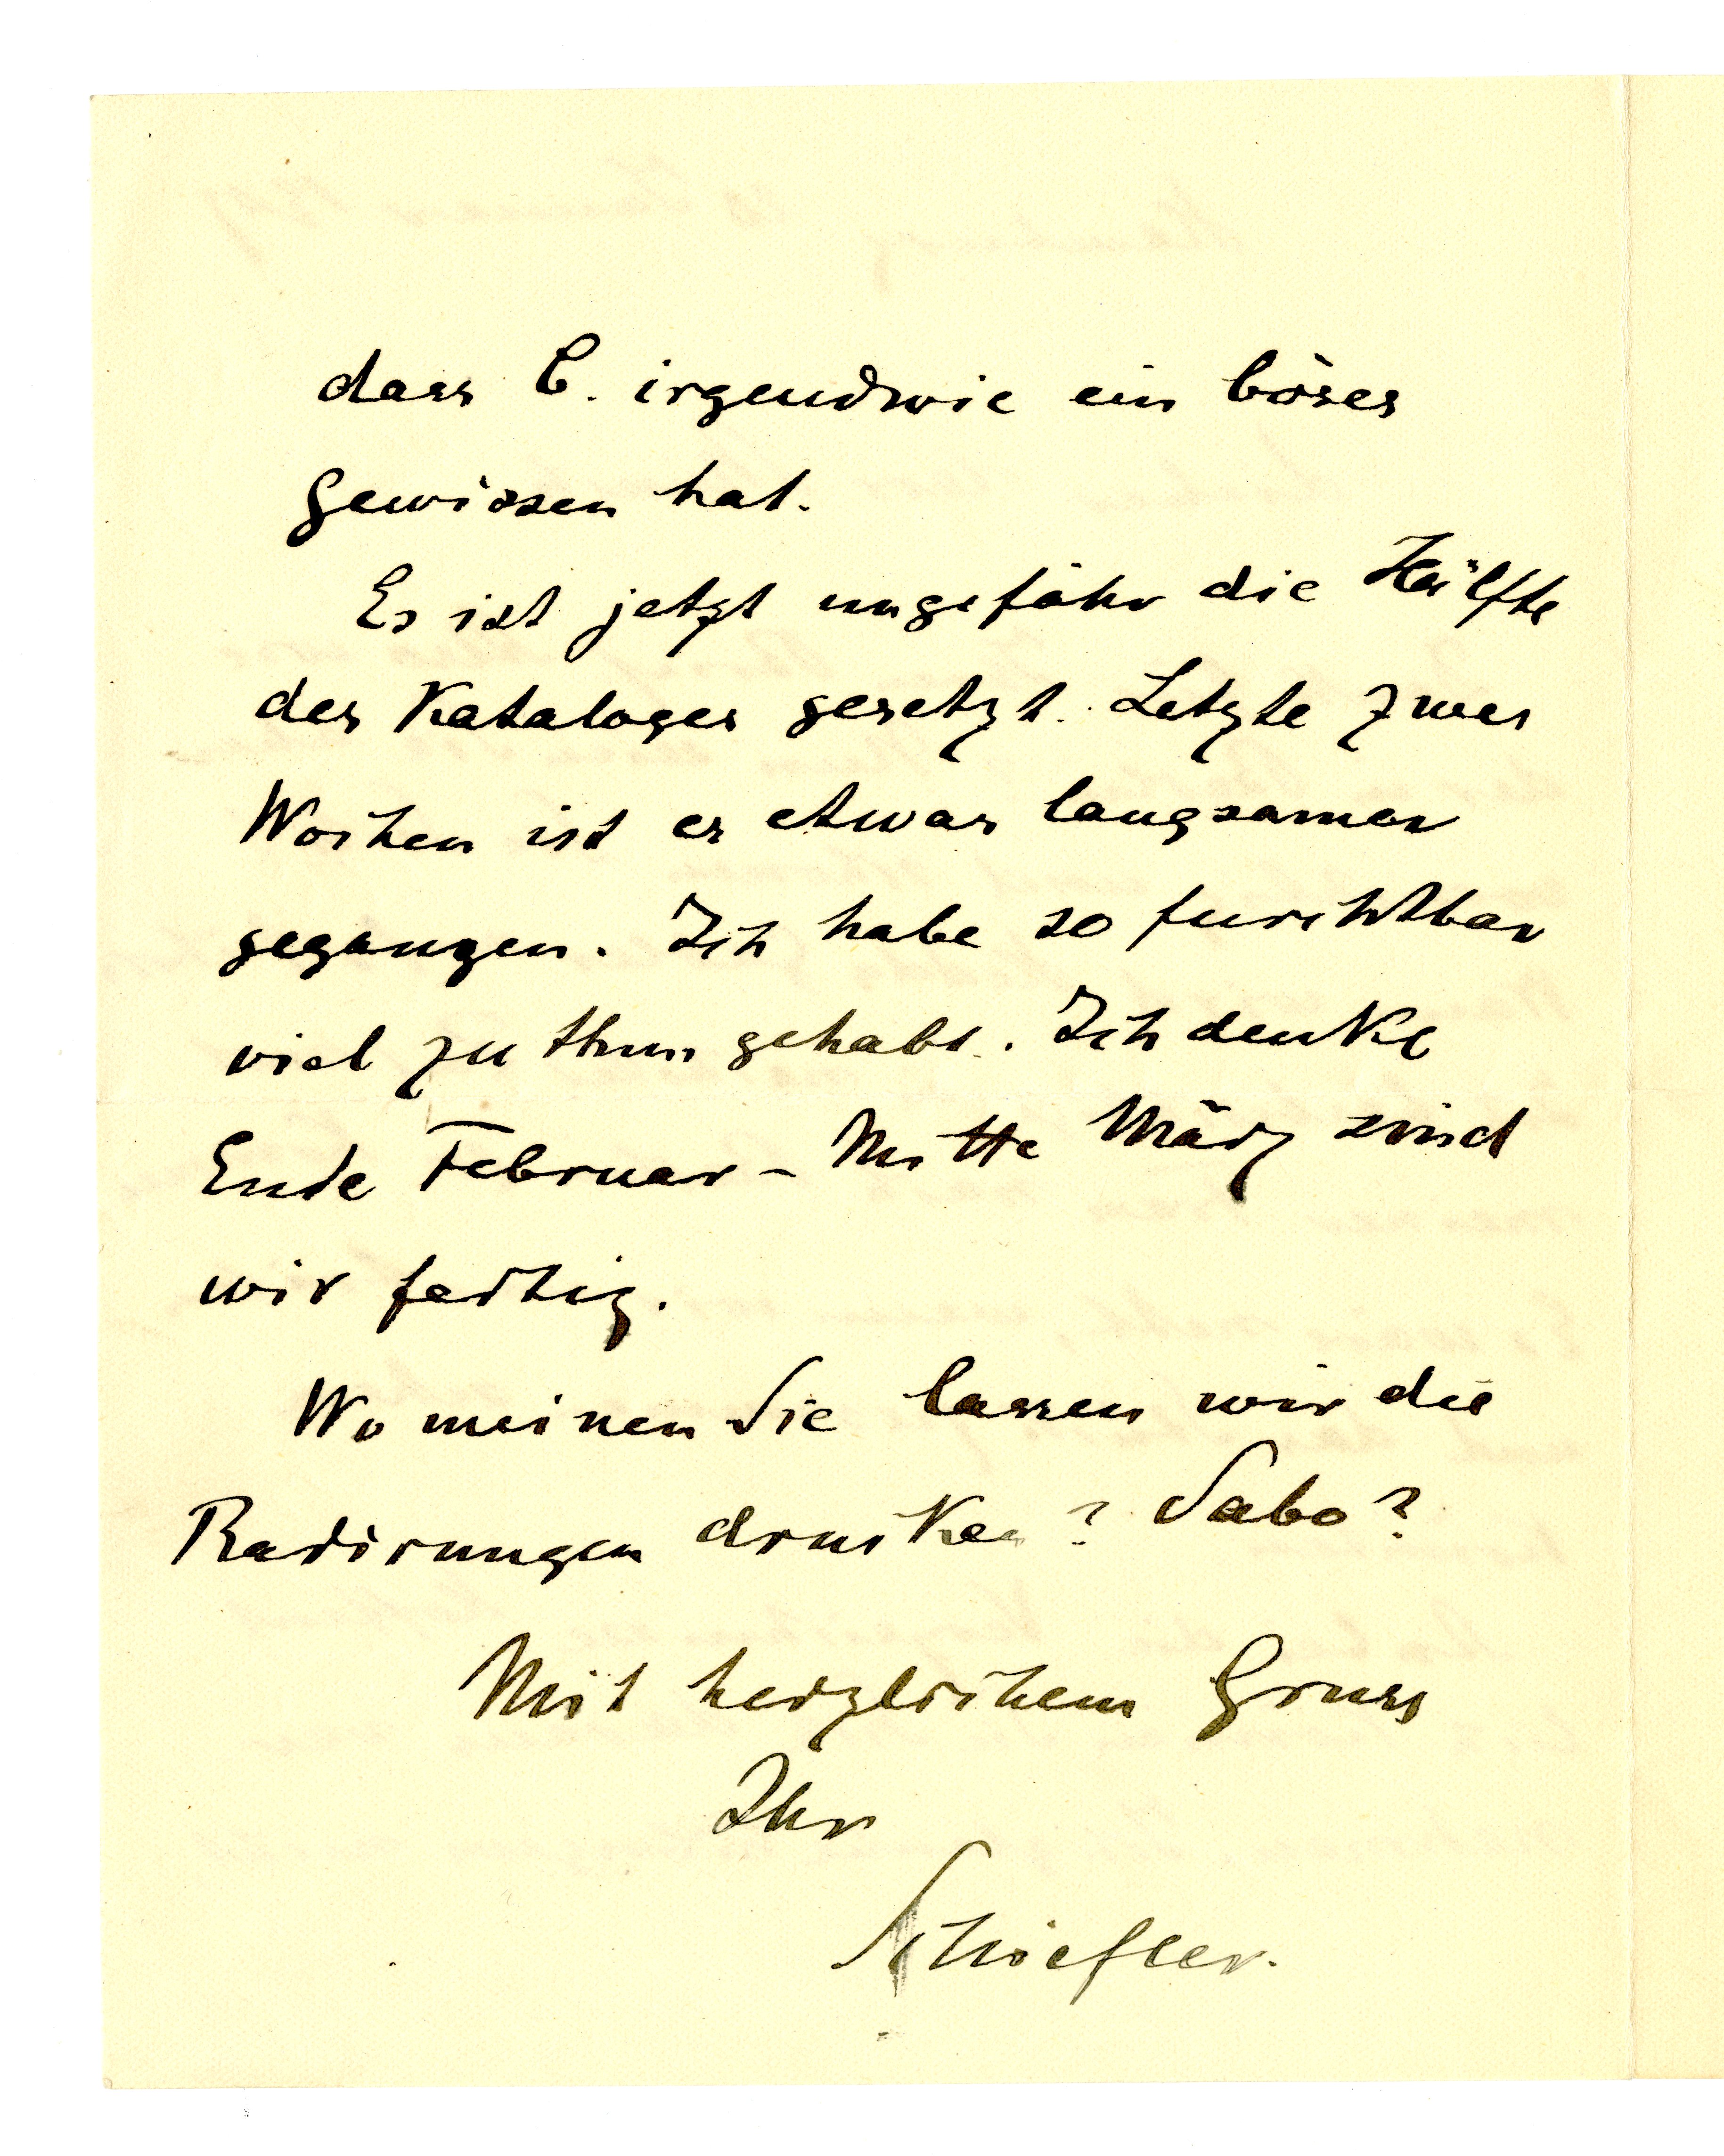 dass C. irgendwie ein böses
Gewissen hat.
Es ist jetzt ungefähr die Hälfte
des Kataloges gesetzt. Letzte zwei
Wochen ist es etwas langsamer
gegangen. Ich habe so furchtbar
viel zu thun gehabt. Ich denke
Ende Februar - Mitte März sind
wir fertig.
Wo meinen Sie lassen wir die
Radirungen drucken? Sabo?
Mit herzlichem Gruss
Ihr
Schiefler.